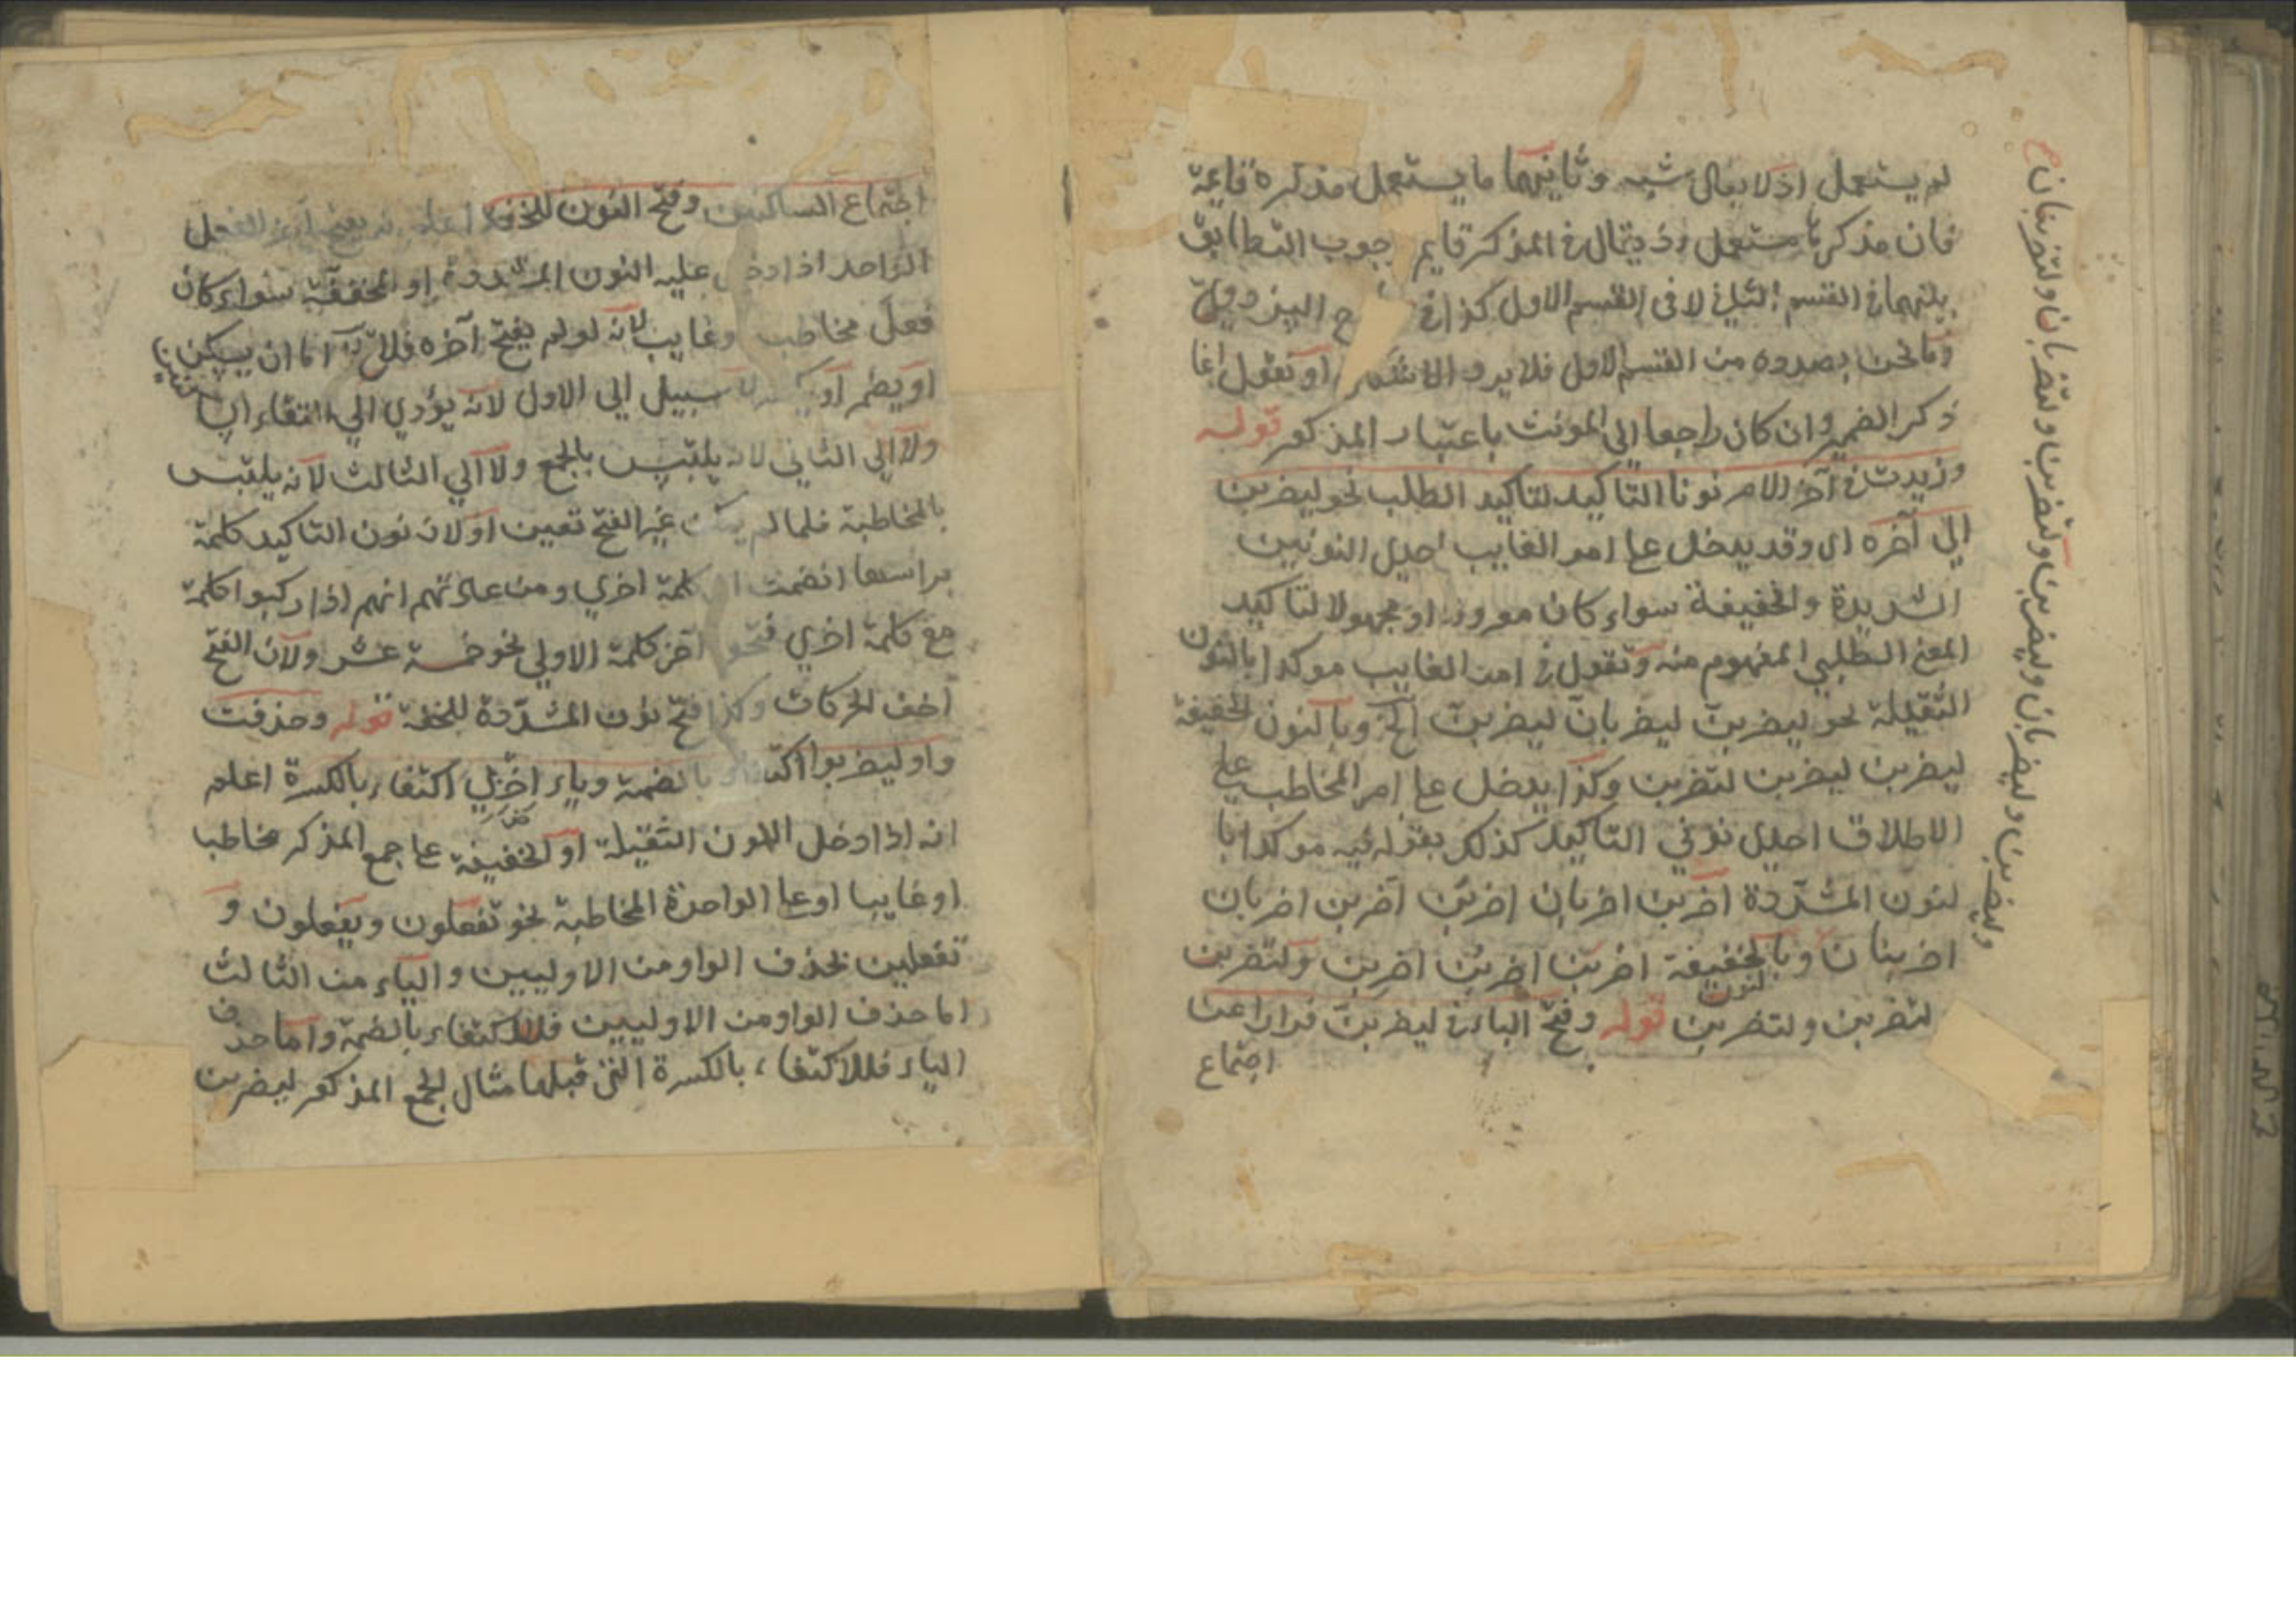 لم يستعمل اذ لا يقال شبه وثانيهما ما يستعمل مذكره قايمة
فان مذكرها مستعمل اذ يقال في المذكر قايم جوب التطابق
بينهما في القسم الثاني لا في القسم الاول كذا في
وما نحن بصدده من القسم الاول فلا يرد او نقول انما
ذكر الضمير وان كان راجعا الى المونث باعتبار المذكور قوله
وزيدت في آخر الامر نونا التاكيد لتاكيد الطلب نحو ليضربن
الي آخره اى وقد يدخل على امر الغايب احدى النونين
الشديدة والخفيفة سواء كان معروفا او مجهولا لتاكيد
المعنى الطلبي المفهوم منه وتقول في امر الغايب موكدا بالنون
الثقيلة نحو ليضربن ليضربان ليضربن الخ وبالنون الخفيفة
ليضربن ليضربن لتضربن وكذا يدخل على امر المخاطب على
الاطلاق احدى نوني التاكيد كذلك بقوله فيه موكدا با
لنون المشددة اضربن اضربان اضربن اضربن اضربان
اضربنان وبالخفيفة اضربن اضربن اضربن ولتضربن
لتضربن ولتضربن قوله وفتح الباء في ليضربن فرارا عن
اجتماع
وليضربن وليضربان وليضربن ولتضربن ولتضربان ولتضربنان
اجتماع الساكنين وفتح النون للخفة اعلم انه يفتح آخر الفعل
الواحد اذا دخل عليه النون المشددة او المخففة سواء كان
فعل مخاطب وغايب لانه لو لم يفتح آخره فلا بد اما ان يسكن
او يضم او يكسر لا سبيل الى الاول لانه يؤدي الي التقاء السا
كنين
ولا الي الثاني لانه يلتبس بالجمع ولا الي الثالث لانه يلتبس
بالمخاطبة فلما لم يكن غير الفتح تعين او لان نون التاكيد كلمة
براسها انضمت كلمة اخري ومن عادتهم انهم اذا ركبوا كلمة
مع كلمة اخري فتحوا آخر كلمة الاولي نحو خمسة عشر ولان الفتح
اخف الحركات وكذا فتح نون المشددة للخفة قوله وحذفت
واو ليضربوا اكتفاء بالضمة وياء اضربي اكتفاء بالكسرة اعلم
انه اذا دخل النون الثقيلة او الخفيفة على جمع المذكر مخاطبا
او غايبا او على الواحدة المخاطبة نحو تفعلون ويفعلون و
تفعلين تحذف الواو من الاوليين والياء من الثالث
اما حذف الواو من الاوليين فللاكتفاء بالضمة واما حذف
الياء فللاكتفاء بالكسرة التي قبلها مثال الجمع المذكور ليضربن